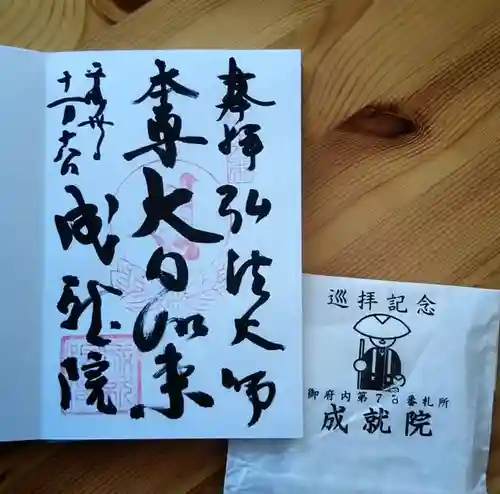 奉拝 弘法大師
本尊 大日如来
平成
十一月
成就院
巡拝記念
御府内第78番札所
成就院